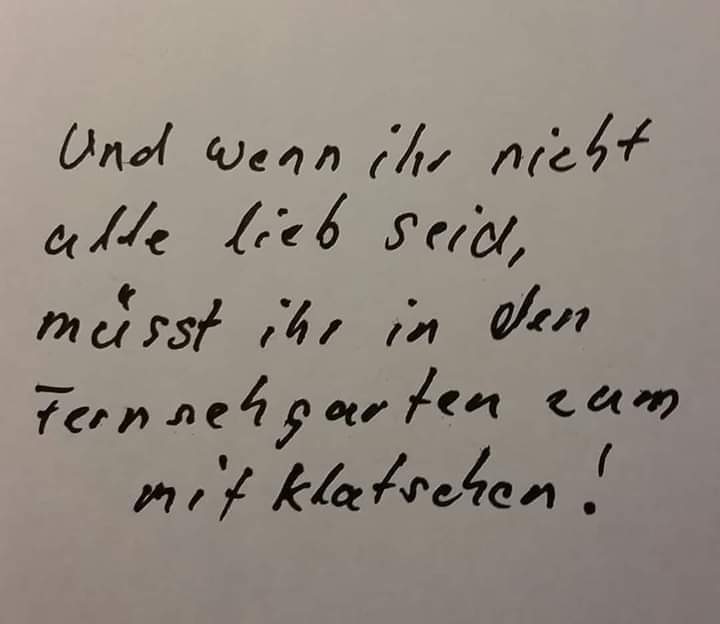 Und wenn ihr nicht
alle lieb seid,
müsst ihr in den
Fernsehgarten zum
mit klatschen!